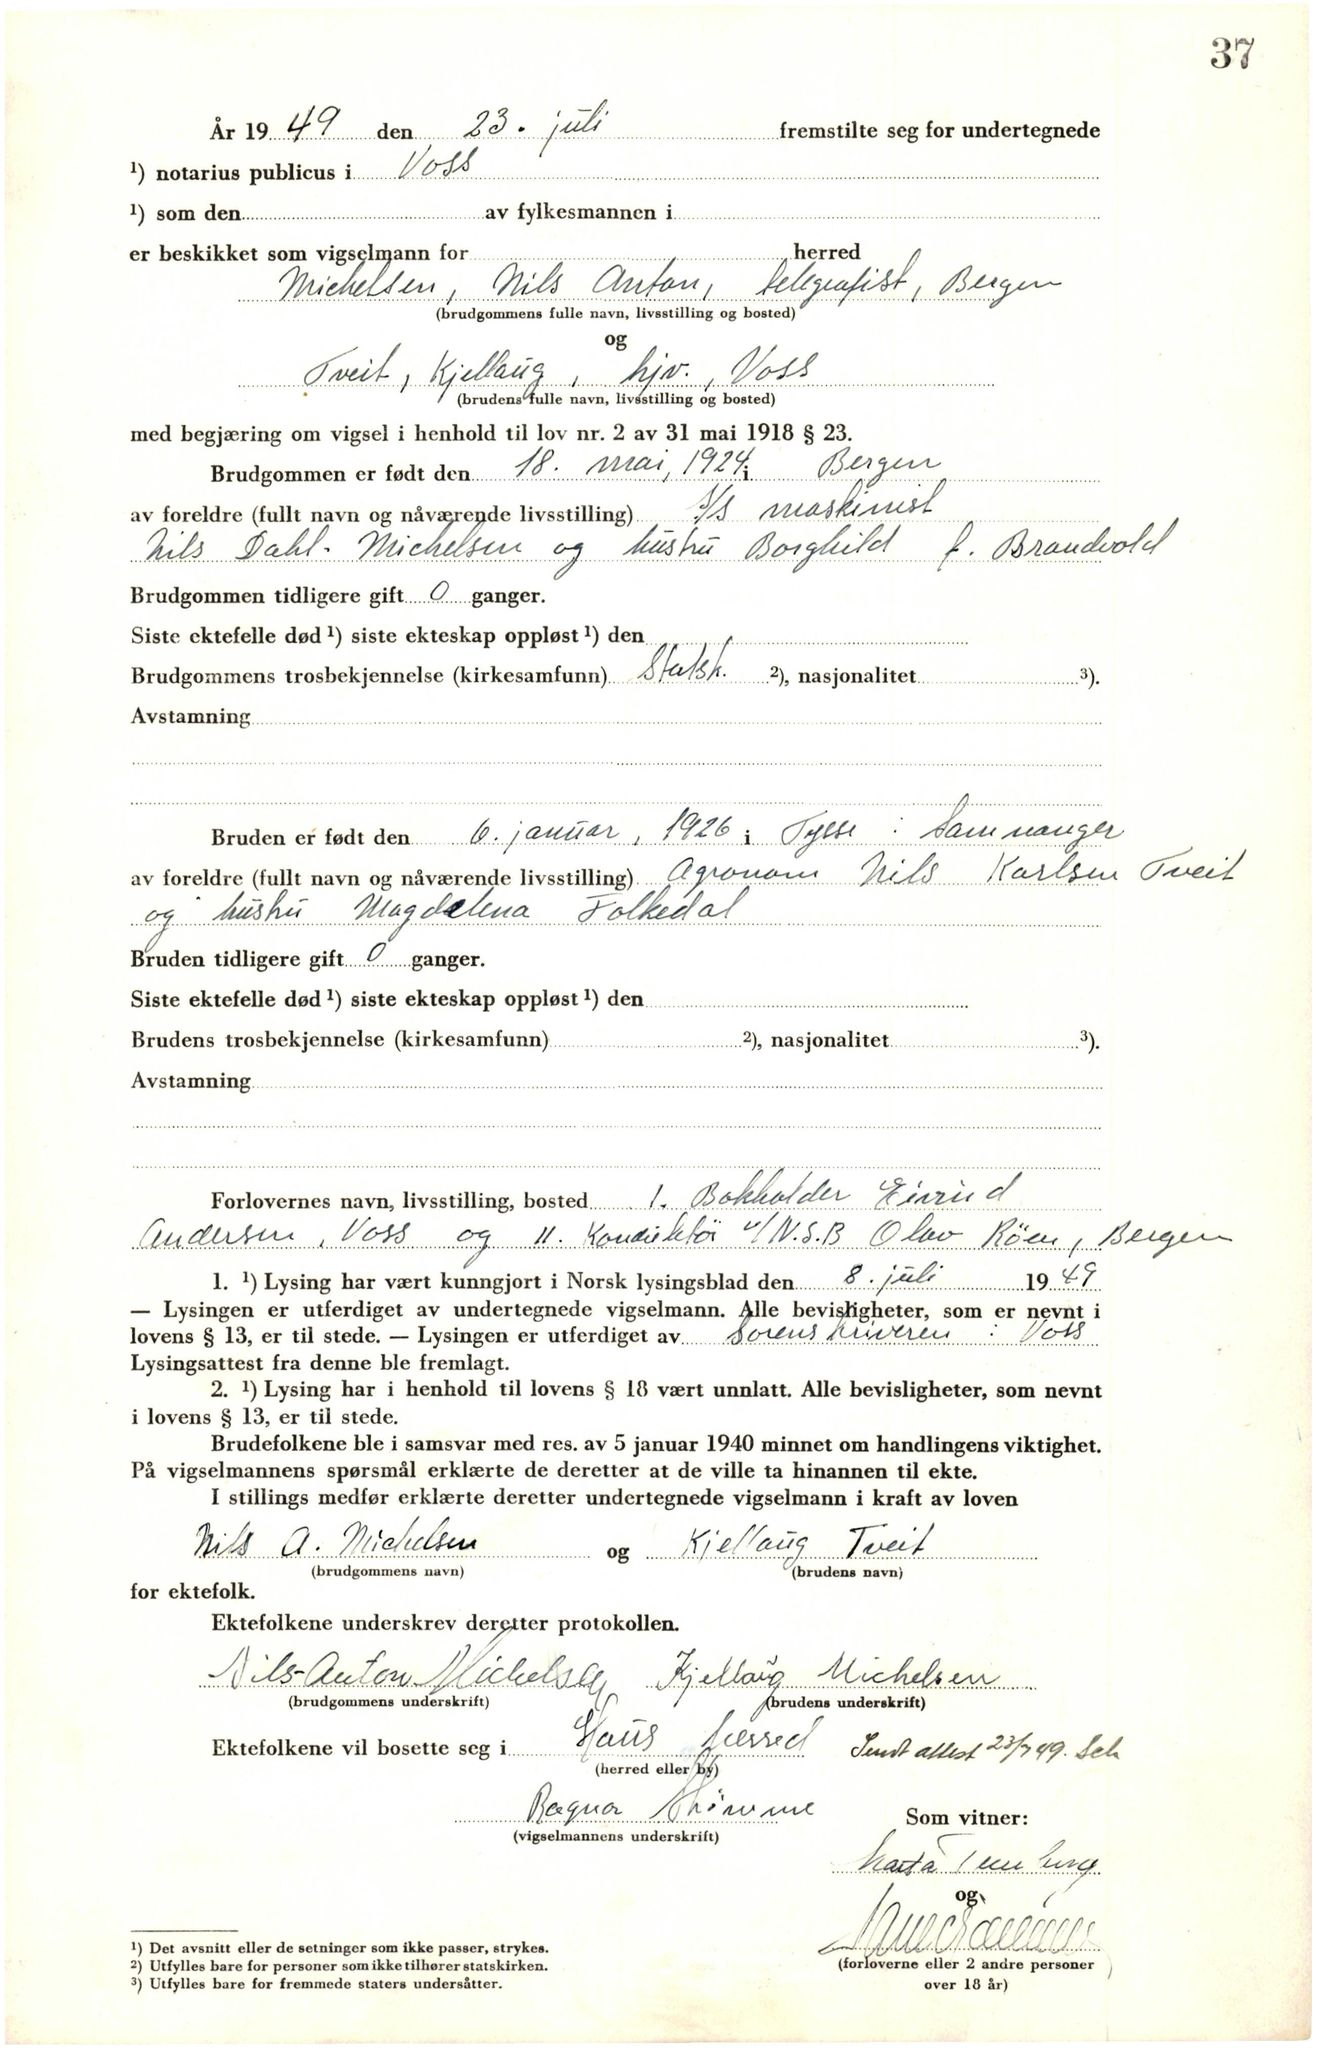 37
År 1949 den 23. juli fremstilte seg for undertegnede
¹) notarius publicus i Voss
¹) som den av fylkesmannen i
er beskikket som vigselmann for herred
Michelsen, Nils Anton, telegrafist, Bergen
(brudgommens fulle navn, livsstilling og bosted)
og
Tveit, Kjellaug, hjv., Voss
(brudens fulle navn, livsstilling og bosted)
med begjæring om vigsel i henhold til lov nr. 2 av 31 mai 1918 § 23.
Brudgommen er født den 18. mai, 1924 i Bergen
av foreldre (fullt navn og nåværende livsstilling) S/S maskinist
Nils Dahl-Michelsen og hustru Borghild f. Brandvold
Brudgommen tidligere gift 0 ganger.
Siste ektefelle død ¹) siste ekteskap oppløst ¹) den
Brudgommens trosbekjennelse (kirkesamfunn) Statsk. ²), nasjonalitet ³).
Avstamning
Bruden er født den 6. januar, 1926 i Tysse i Samnanger
av foreldre (fullt navn og nåværende livsstilling) Agronom Nils Karlsen Tveit
og hustru Magdelena Folkedal
Bruden tidligere gift 0 ganger.
Siste ektefelle død ¹) siste ekteskap oppløst ¹) den
Brudens trosbekjennelse (kirkesamfunn) ²), nasjonalitet ³).
Avstamning
Forlovernes navn, livsstilling, bosted 1. Bokholder Eivind
Andersen, Voss og II. Konduktör v/N.S.B Olav Röen, Bergen
1. ¹) Lysing har vært kunngjort i Norsk lysingsblad den 8. juli 1949
— Lysingen er utferdiget av undertegnede vigselmann. Alle bevisligheter, som er nevnt i
lovens § 13, er til stede. — Lysingen er utferdiget av Sorenskriveren i Voss
Lysingsattest fra denne ble fremlagt.
2. ¹) Lysing har i henhold til lovens § 18 vært unnlatt. Alle bevisligheter, som nevnt
i lovens § 13, er til stede.
Brudefolkene ble i samsvar med res. av 5 januar 1940 minnet om handlingens viktighet.
På vigselmannens spørsmål erklærte de deretter at de ville ta hinannen til ekte.
I stillings medfør erklærte deretter undertegnede vigselmann i kraft av loven
Nils A. Michelsen og Kjellaug Tveit
(brudgommens navn) (brudens navn)
for ektefolk.
Ektefolkene underskrev deretter protokollen.
Nils-Anton Michelsen Kjellaug Michelsen
(brudgommens underskrift) (brudens underskrift)
Ektefolkene vil bosette seg i Haus herred Sendt attest 23/7 49.
(herred eller by)
Ragnar
(vigselmannens underskrift)
Som vitner:
og
(forloverne eller 2 andre personer
over 18 år)
¹) Det avsnitt eller de setninger som ikke passer, strykes.
²) Utfylles bare for personer som ikke tilhører statskirken.
³) Utfylles bare for fremmede staters undersåtter.